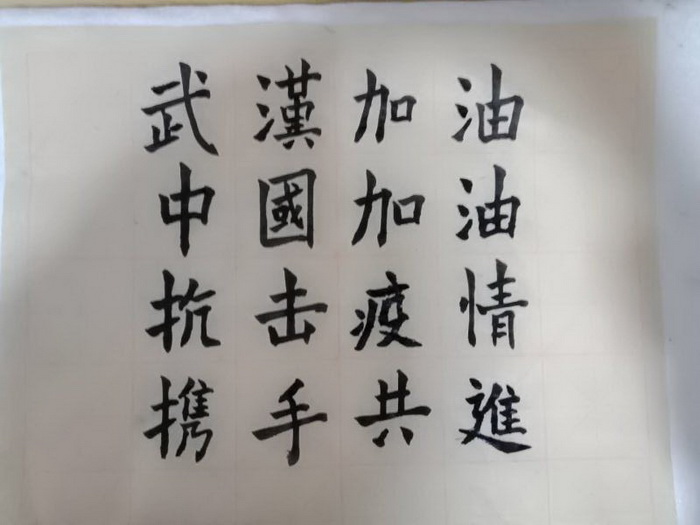 武漢加油
中國加油
抗击疫情
携手共進